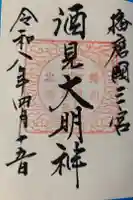 播磨國三宮
酒見大明神
令和八年四月十五日